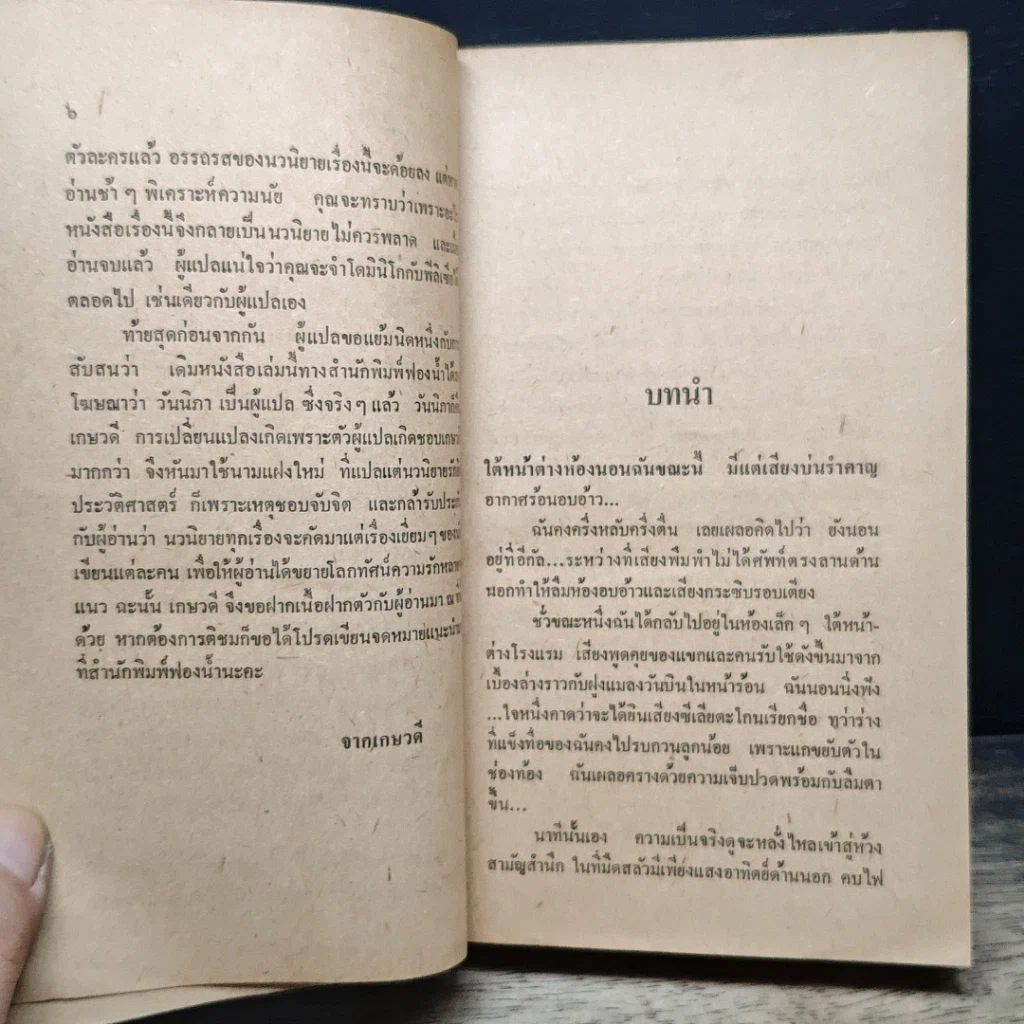 ๖
ตัวละครแล้ว อรรถรสของนวนิยายเรื่องนี้จะด้อยลง
อ่านช้า ๆ พิเคราะห์ความนัย คุณจะทราบว่าเพราะ
หนังสือเรื่องนี้จึงกลายเป็นนวนิยายไม่ควรพลาด
อ่านจบแล้ว ผู้แปลแน่ใจว่าคุณจะจำโดมินิโกกับ
ตลอดไป เช่นเดียวกับผู้แปลเอง
ท้ายสุดก่อนจากกัน ผู้แปลขอแย้มนิดหนึ่ง
สับสนว่า เดิมหนังสือเล่มนี้ทางสำนักพิมพ์ฟองน้ำ
โฆษณาว่า วันนิภา เป็นผู้แปล ซึ่งจริง ๆ แล้ว วันนิภา
เกษวดี การเปลี่ยนแปลงเกิดเพราะตัวผู้แปลเกิดชอบ
มากกว่า จึงหันมาใช้นามแฝงใหม่ ที่แปลแต่นวนิยาย
ประวัติศาสตร์ ก็เพราะเหตุชอบจับจิต และกล้ารับ
กับผู้อ่านว่า นวนิยายทุกเรื่องจะคัดมาแต่เรื่องเยี่ยม ๆ
เขียนแต่ละคน เพื่อให้ผู้อ่านได้ขยายโลกทัศน์ความรัก
แนว ฉะนั้น เกษวดี จึงขอฝากเนื้อฝากตัวกับผู้อ่านมา ณ
ด้วย หากต้องการติชมก็ขอได้โปรดเขียนจดหมาย
ที่สำนักพิมพ์ฟองน้ำนะคะ
จากเกษวดี
บทนำ
ใต้หน้าต่างห้องนอนฉันขณะนี้ มีแต่เสียงบ่นรำคาญ
อากาศร้อนอบอ้าว...
ฉันคงครึ่งหลับครึ่งตื่น เลยเผลอคิดไปว่า ยังนอน
อยู่ที่อีกัล...ระหว่างที่เสียงพึมพำไม่ได้ศัพท์ตรงลานด้าน
นอกทำให้ลืมห้องอบอ้าวและเสียงกระซิบรอบเตียง
ชั่วขณะหนึ่งฉันได้กลับไปอยู่ในห้องเล็ก ๆ ใต้หน้า-
ต่างโรงแรม เสียงพูดคุยของแขกและคนรับใช้ดังขึ้นมาจาก
เบื้องล่างราวกับฝูงแมลงวันบินในหน้าร้อน ฉันนอนนิ่งฟัง
...ใจหนึ่งคาดว่าจะได้ยินเสียงซีเลียตะโกนเรียกชื่อ ทว่าร่าง
ที่แข็งทื่อของฉันคงไปรบกวนลูกน้อย เพราะแกขยับตัวใน
ช่องท้อง ฉันเผลอครางด้วยความเจ็บปวดพร้อมกับลืมตา
ขึ้น...
นาทีนั้นเอง ความเป็นจริงดูจะหลั่งไหลเข้าสู่ห้วง
สามัญสำนึก ในที่มืดสลัวมีเพียงแสงอาทิตย์ด้านนอก คบไฟ